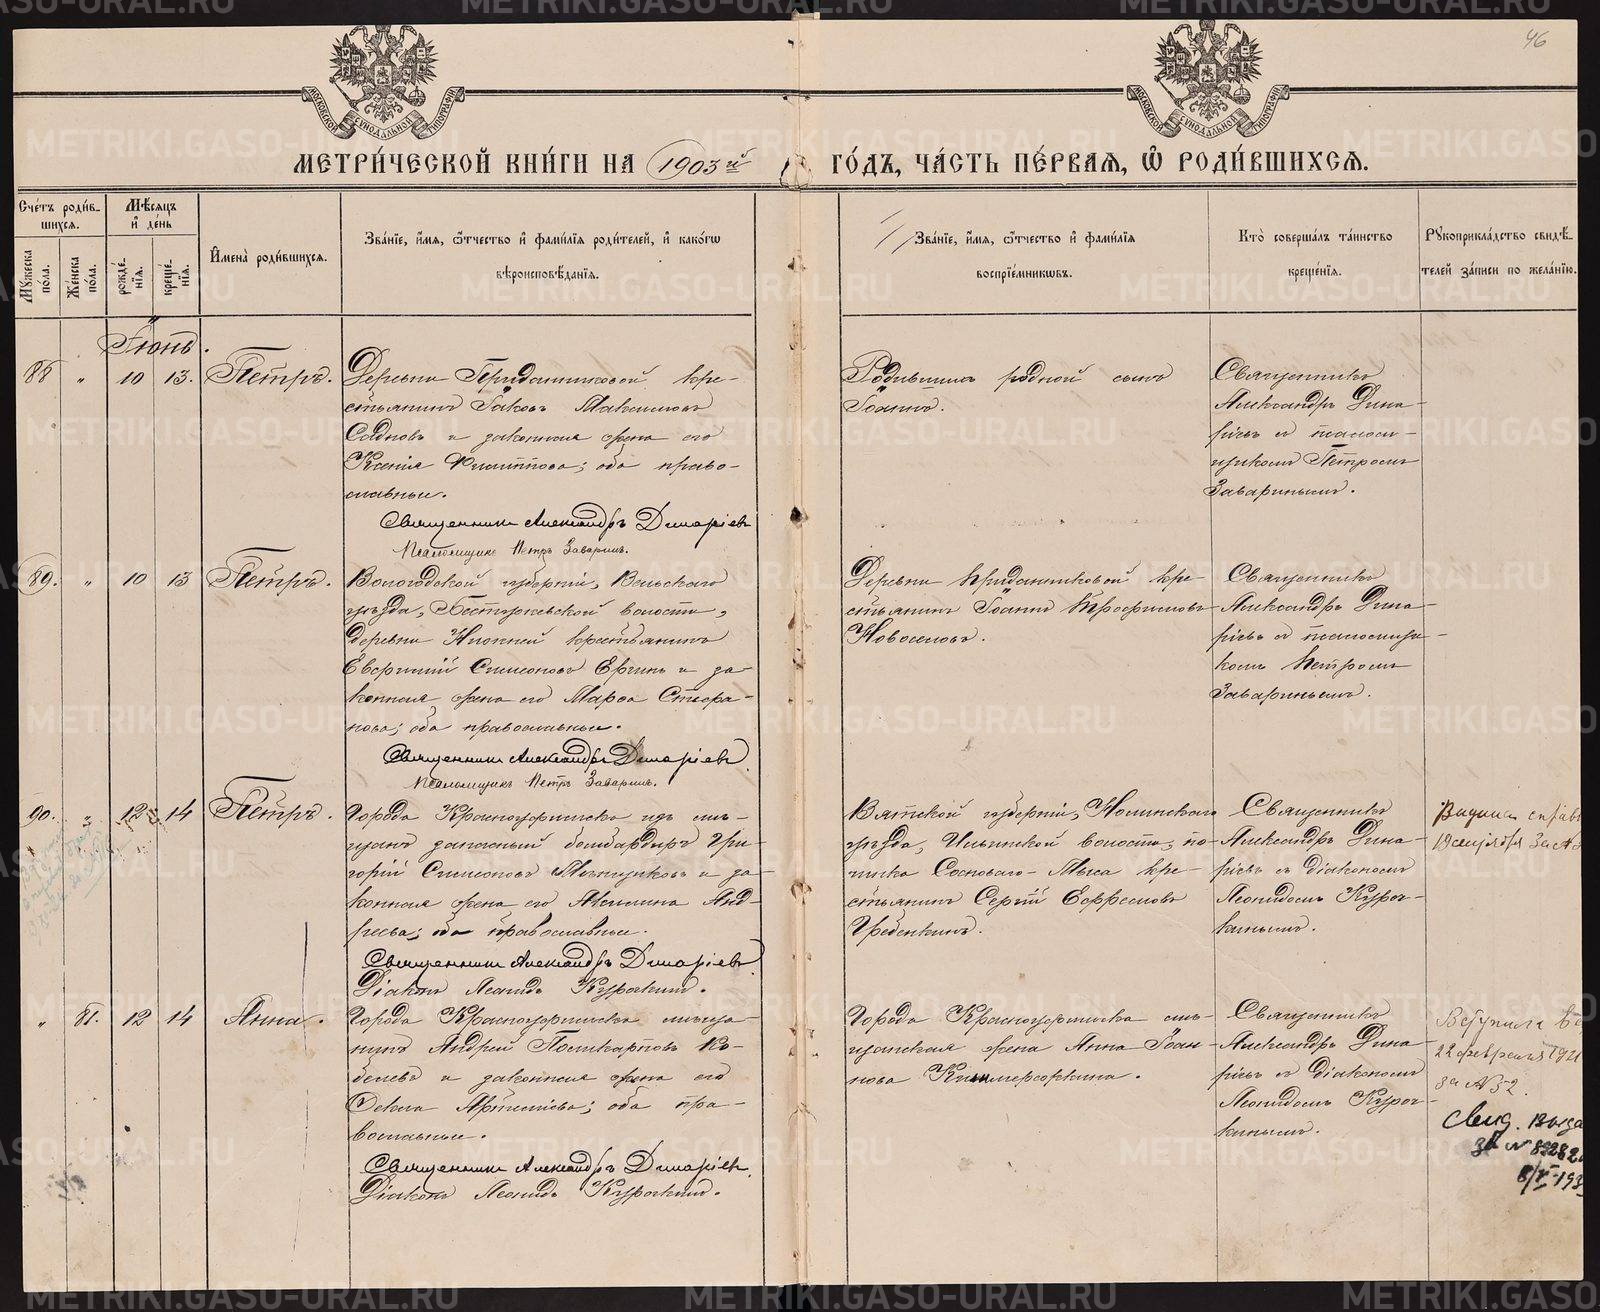 46
МОСКОВСКОЙ СѴНОДАЛЬНОЙ ТИПОГРАФІИ
МОСКОВСКОЙ СѴНОДАЛЬНОЙ ТИПОГРАФІИ
МЕТРИ́ЧЕСКОЙ КНИ́ГИ НА 1903й ГО́ДЪ, ЧА́СТЬ ПЕ́РВАѦ, Ѡ҆ РОДИ́ВШИХСѦ.
Сче́тъ роди́в-
шихсѧ.
Му́жеска по́ла.
Же́нска по́ла.
Мѣ́сѧцъ и҆ де́нь
рожде́нїѧ.
креще́нїѧ.
И҆мена̀ роди́вшихсѧ.
Зва́нїе, и҆́мѧ, ѻ҆́тчество и҆ фами́лїѧ роди́телей, и҆ како́гѡ
вѣроисповѣ́данїѧ.
Зва́нїе, и҆́мѧ, ѻ҆́тчество и҆ фами́лїѧ
воспрїе́мникѡвъ.
Кто̀ соверша́лъ та́инство
креще́нїѧ.
Рꙋкоприкла́дство свидѣ́-
телей за́писи по жела́нїю.
Іюнь.
88 " 10 13. Петръ.
Деревни Приданниковой кре-
стьянинъ Іаковъ Максимовъ
и законная жена его
Ксенія Филиппова; оба право-
славные.
Священникъ Александръ Динаріевъ
Псаломщикъ Петръ Заваринъ.
Родившихъ родной сынъ
Іоаннъ.
Священникъ
Александръ Дина-
ріевъ съ псалом-
щикомъ Петромъ
Заваринымъ.
89. " 10 13 Петръ.
Вологодской губерніи, Вельскаго
уѣзда, Бестужевской волости,
деревни Нижней крестьянинъ
Евфимій Симоновъ Ергинъ и за-
конная жена его Марфа Стефа-
нова; оба православные.
Священникъ Александръ Динаріевъ
Псаломщикъ Петръ Заваринъ.
Деревни Приданниковой кре-
стьянинъ Іоаннъ Трофимовъ
Новоселовъ.
Священникъ
Александръ Дина-
ріевъ съ псаломщи-
комъ Петромъ
Заваринымъ.
90. " 12 14 Петръ.
Города Красноуфимска изъ мѣ-
щанъ запасный бомбардиръ Гри-
горій Симоновъ и за-
конная жена его Акилина Анд-
реева; оба православные.
Священникъ Александръ Динаріевъ
Діаконъ Леонидъ Курочкинъ.
Вятской губерніи, Нолинскаго
уѣзда, Ильинской волости, по-
чинка Сосноваго-Мыса кре-
стьянинъ Сергій Ефремовъ
Гребенкинъ.
Священникъ
Александръ Дина-
ріевъ съ діакономъ
Леонидомъ Куроч-
кинымъ.
Выдана справ
" 81. 12 14 Анна.
Города Красноуфимска мѣща-
нинъ Андрей Поликарповъ Ко-
белевъ и законная жена его
Ѳекла Артемьева; оба пра-
вославные.
Священникъ Александръ Динаріевъ
Діаконъ Леонидъ Курочкинъ.
Города Красноуфимска мѣ-
щанская жена Анна Іоан-
нова
Священникъ
Александръ Дина-
ріевъ съ діакономъ
Леонидомъ Куроч-
кинымъ.
Вступила въ
22 февраля 1921
за № 52.
Свид. выда
за №
METRIKI.GASO-URAL.RU